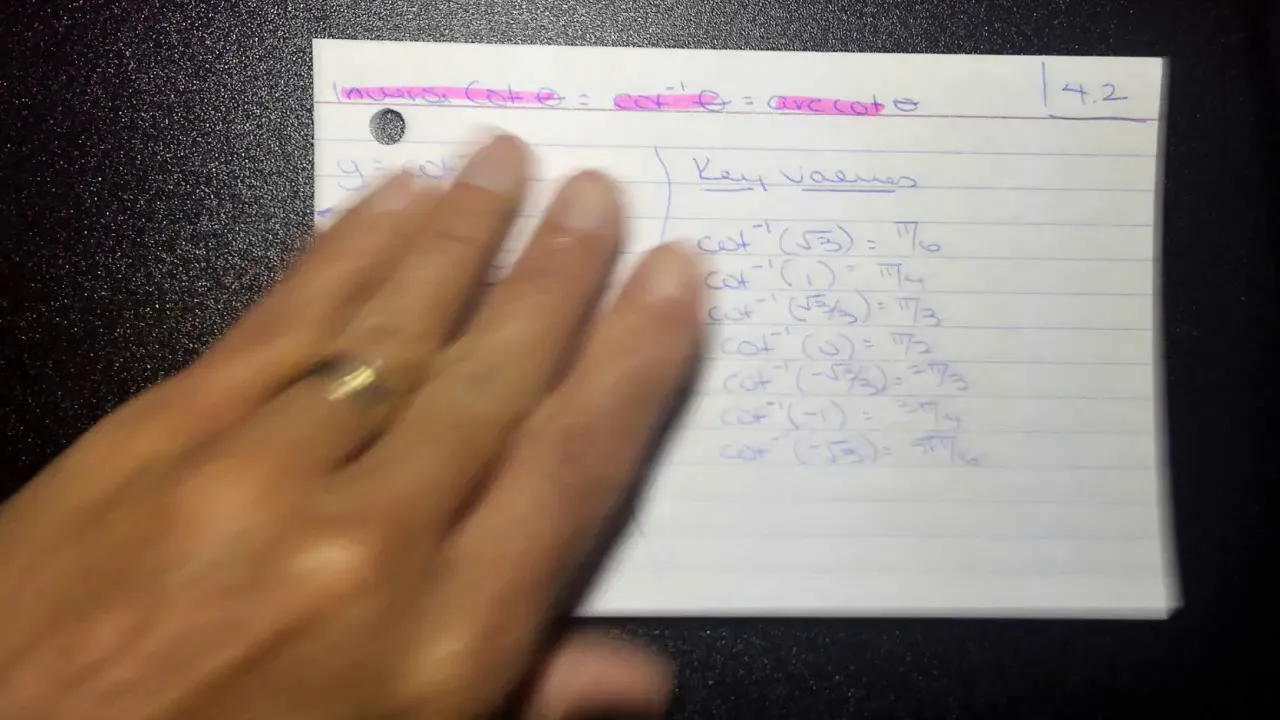 Inverse Cot θ = cot⁻¹ θ = arccot θ
4.2
y = cot
Key values
cot⁻¹(√3) = π/6
cot⁻¹(1) = π/4
cot⁻¹(√3/3) = π/3
cot⁻¹(0) = π/2
cot⁻¹(-√3/3) = 2π/3
cot⁻¹(-1) = 3π/4
cot⁻¹(-√3) =